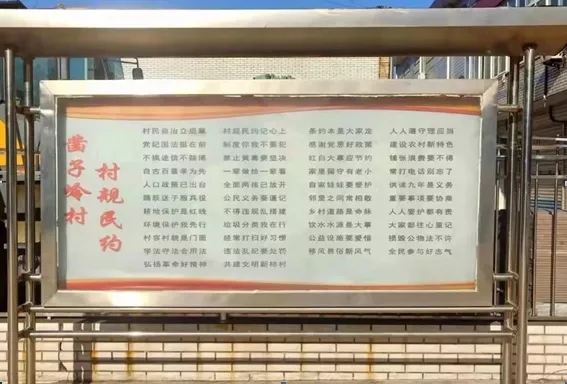 凿子岭村
村规民约
村民自治立规章 村规民约记心上 条约本是大家定 人人遵守理应当
党纪国法摆在前 制度你我不要犯 感谢党恩好政策 建设农村新特色
不搞迷信不赌博 禁止黄毒要坚决 红白大事应节约 铺张浪费要不得
自古百善孝为先 一辈做给一辈看 家里留守有老小 常打电话别忘了
人口政策已出台 全面两孩已放开 自家娃娃要爱护 供读九年是义务
踊跃送子服兵役 公民义务要谨记 邻里之间常相敬 重要事项要协商
耕地保护是红线 不得违规乱搭建 乡村道路是命脉 人人爱护都有责
环境保护我先行 垃圾分类我在行 饮水水源是大事 大家都往心里记
村容村貌是门面 经常打扫好习惯 公益设施要爱惜 损毁公物法不许
学法守法会用法 违法乱纪要处罚 移风易俗新风气 全民参与好志气
弘扬革命好精神 共建文明新特村